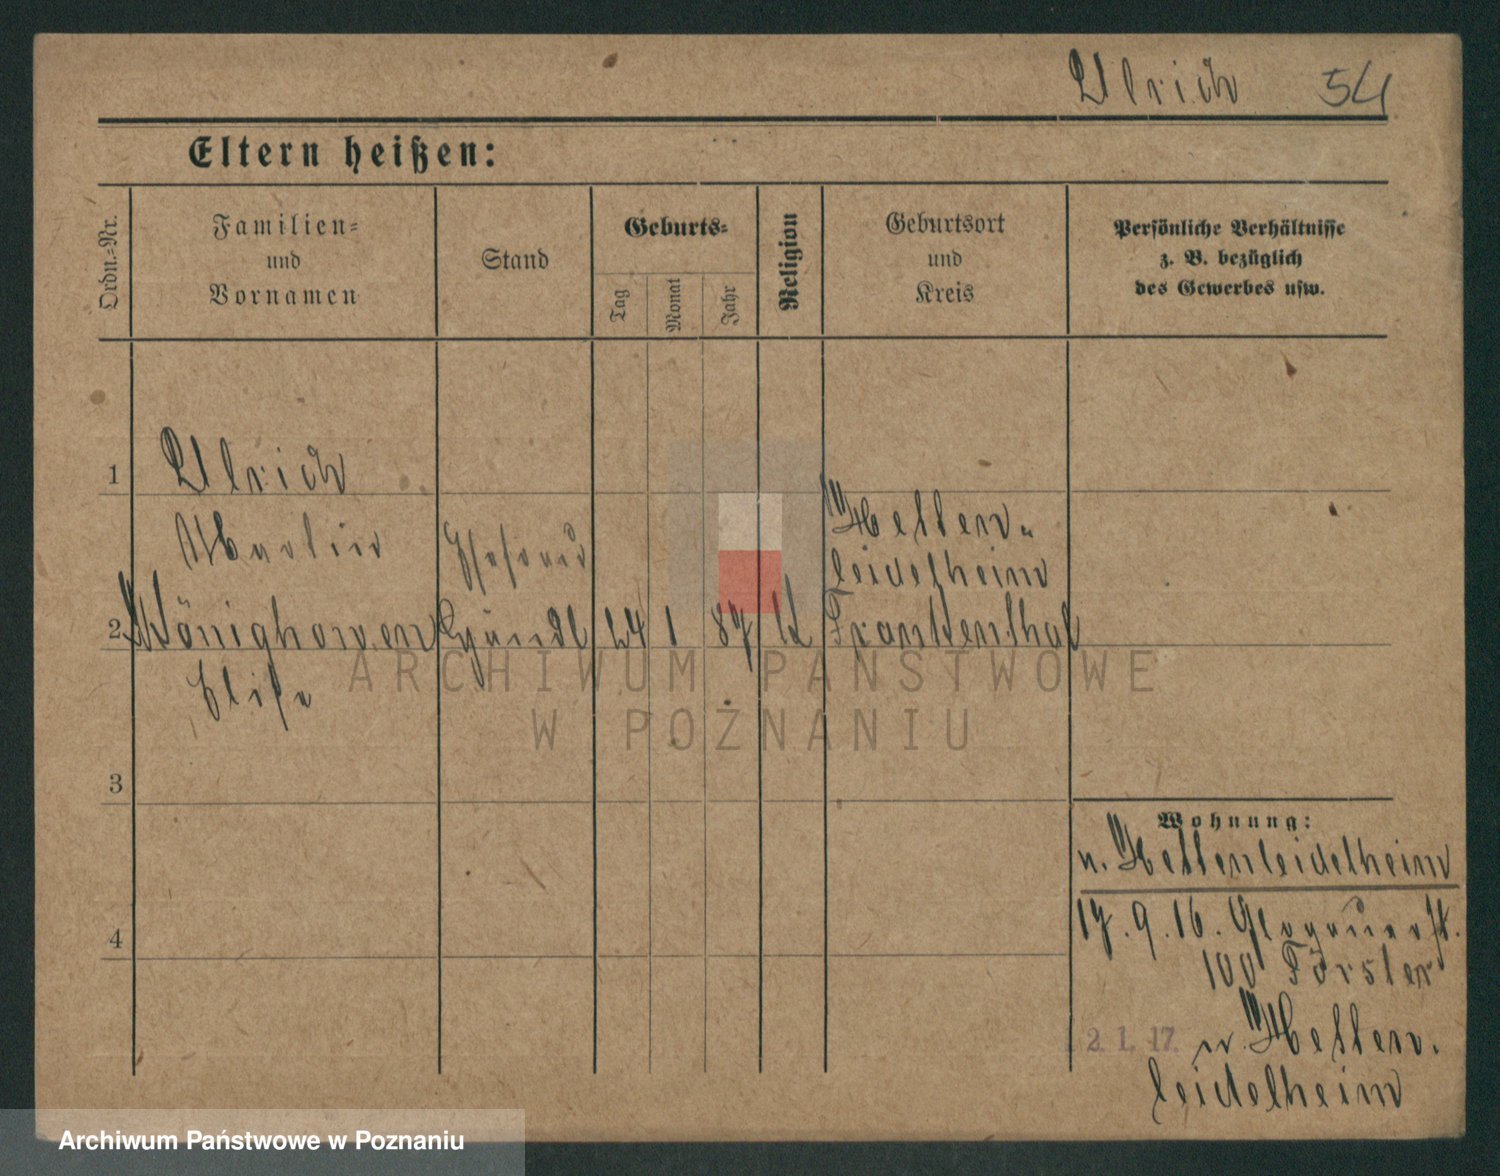 Ulrich 54
Eltern heißen:
Ordn.-Nr.
Familien-
und
Vornamen
Stand
Geburts-
Tag
Monat
Jahr
Religion
Geburtsort
und
Kreis
Persönliche Verhältnisse
z. B. bezüglich
des Gewerbes usw.
1
Ulrich
Martin
Hetten-
leidelheim
2 Könighoven 24 1 87 k Frankenthal
Elise
ARCHIWUM PAŃSTWOWE
W POZNANIU
3
Wohnung:
n. Hettenleidelheim
4
17. 9. 16. Glogauerst.
100 Förster
2. 1. 17. n. Hetten-
leidelheim
Archiwum Państwowe w Poznaniu